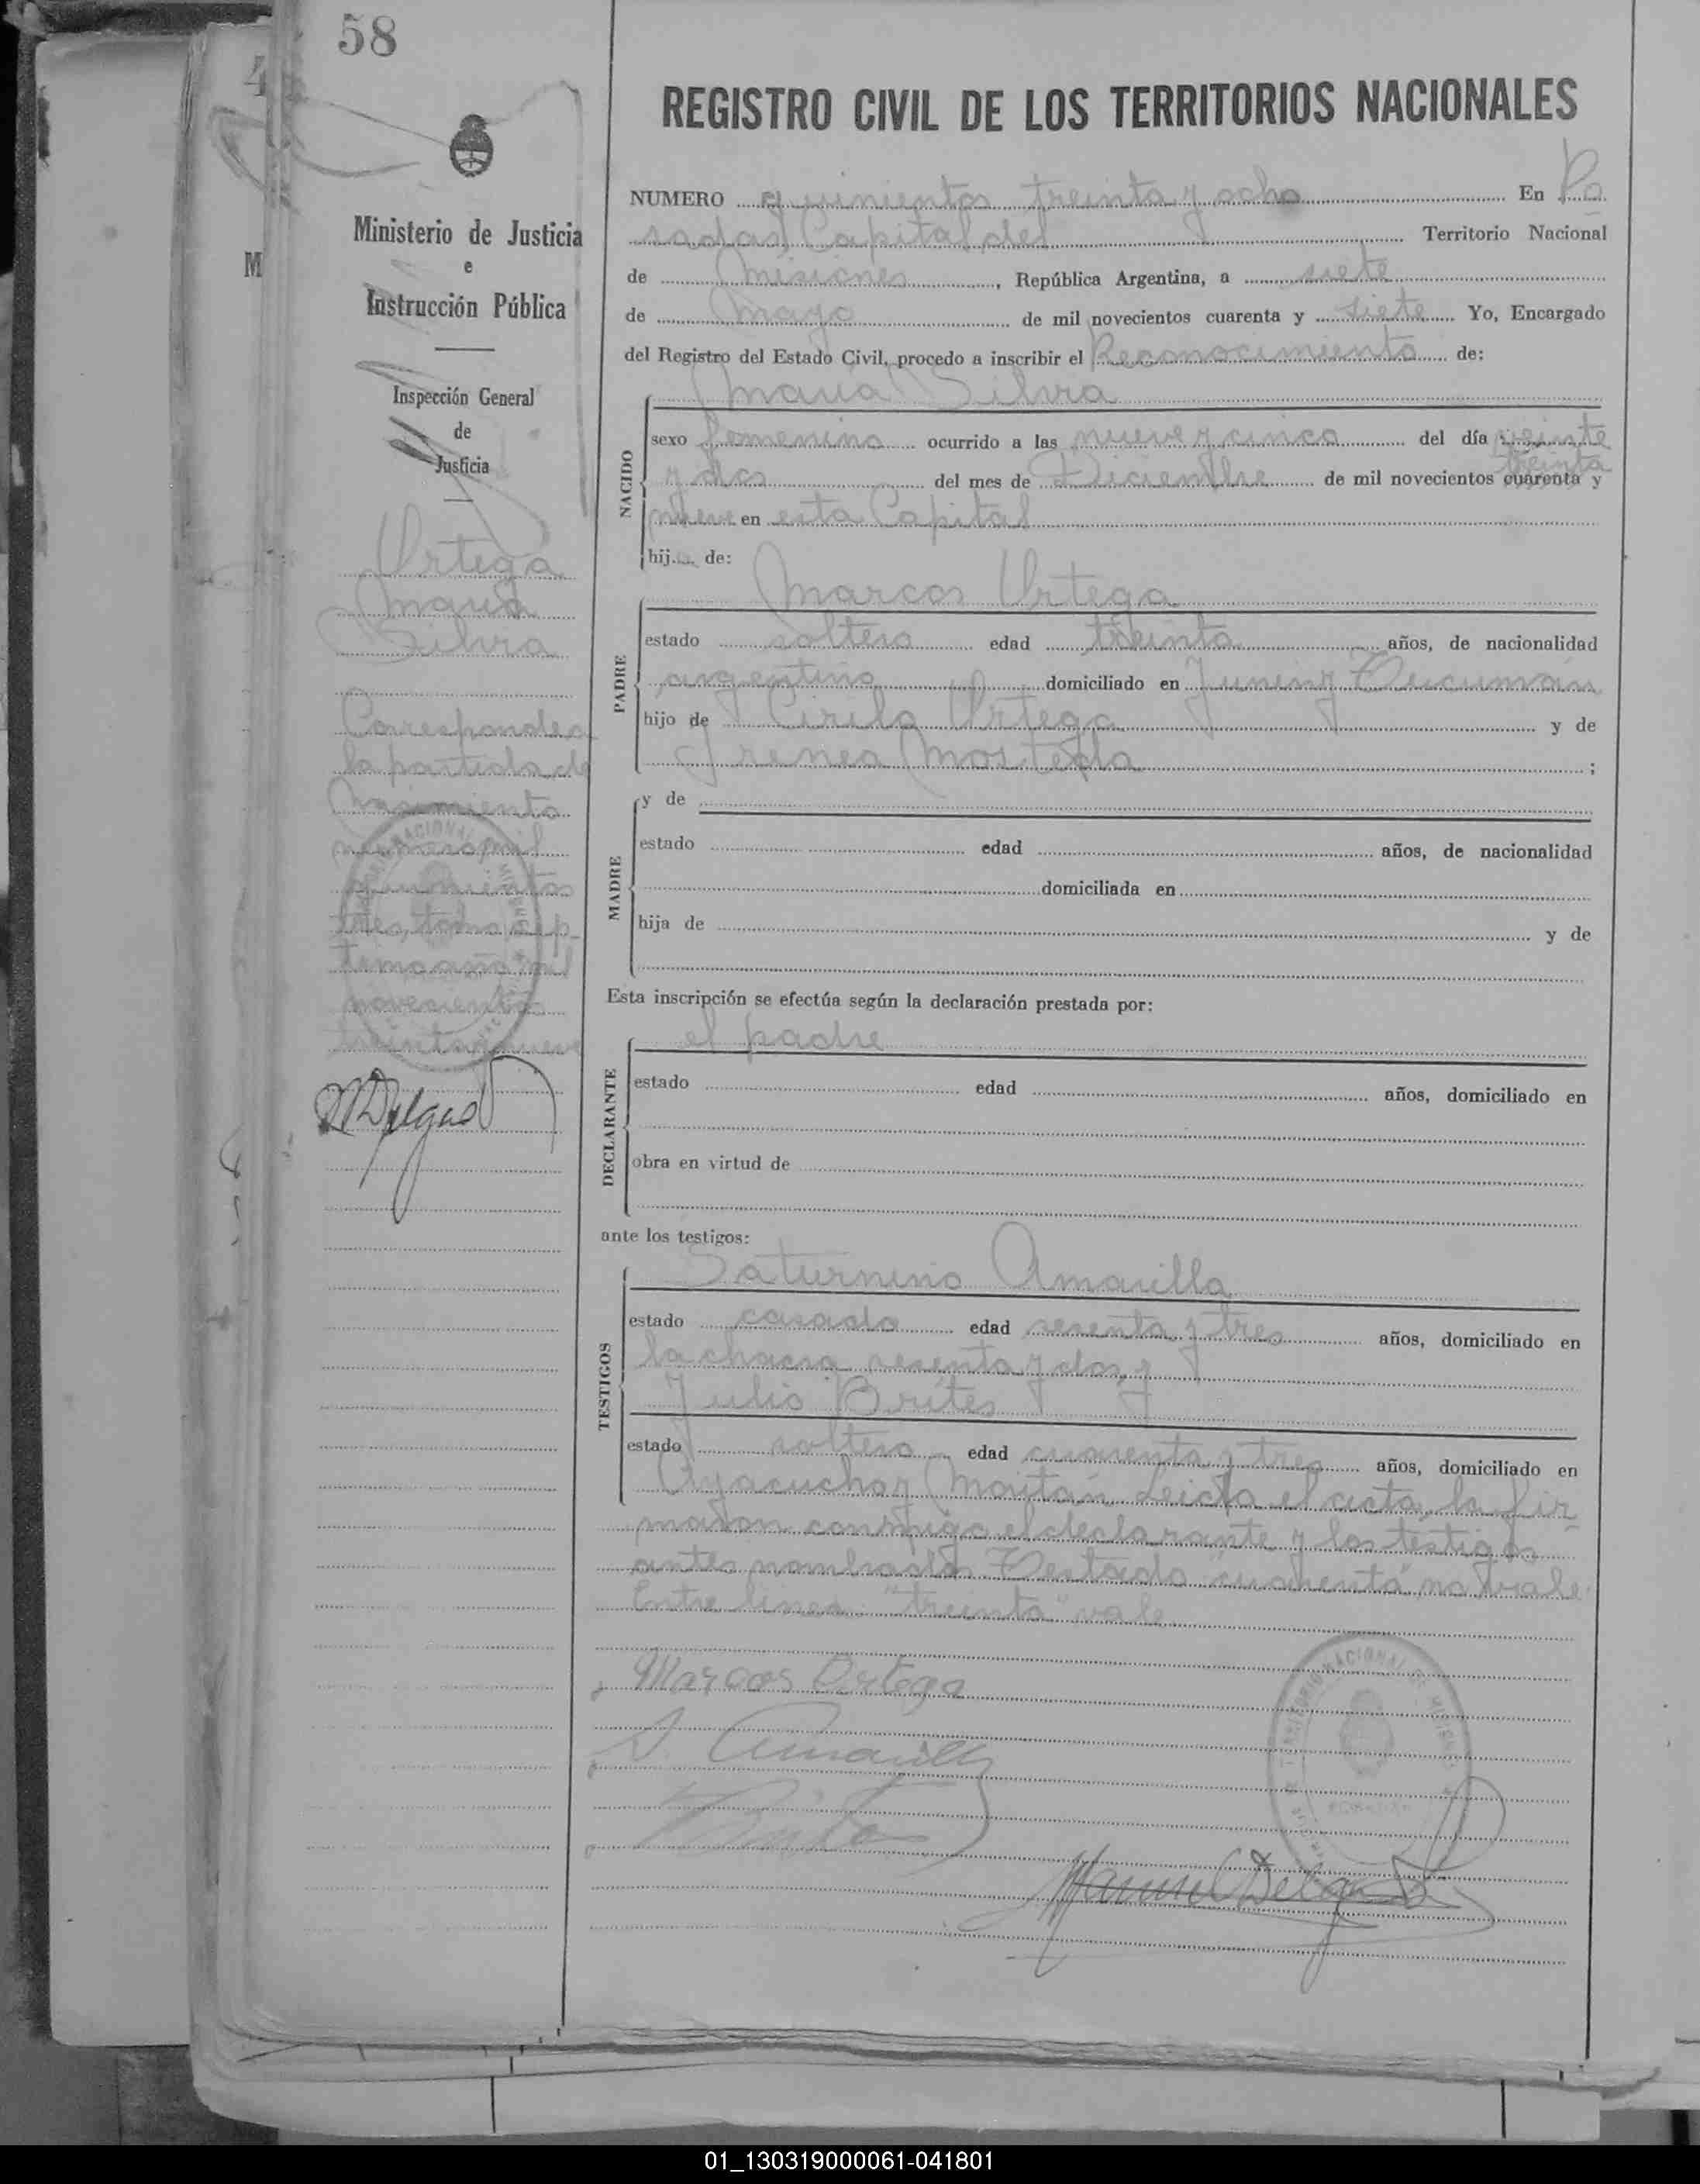 58
Ministerio de Justicia
e
Instrucción Pública
Inspección General
de
Justicia
Ortega
Maria
Silvia
Corresponde a
la partida de
Nacimiento
numero mil
quinientos
tres, tomo sép-
timo año mil
novecientos
treinta y nueve
MDelgado
REGISTRO CIVIL DE LOS TERRITORIOS NACIONALES
NUMERO quinientos treinta y ocho En Po
sadas, Capital del Territorio Nacional
de Misiones, República Argentina, a siete
de Mayo de mil novecientos cuarenta y siete Yo, Encargado
del Registro del Estado Civil, procedo a inscribir el Reconocimiento de:
Maria Silvia
NACIDO
sexo femenino ocurrido a las nueve y cinco del día veinte
treinta
y dos del mes de Diciembre de mil novecientos cuarenta y
nueve en esta Capital
hija de:
Marcos Ortega
PADRE
estado soltero edad treinta años, de nacionalidad
argentino domiciliado en Junin y Tucumán
hijo de Cirilo Ortega y de
Irenea ;
MADRE
y de
estado edad años, de nacionalidad
domiciliada en
hija de y de
Esta inscripción se efectúa según la declaración prestada por:
el padre
DECLARANTE
estado edad años, domiciliado en
obra en virtud de
ante los testigos:
Saturnino Amarilla
TESTIGOS
estado casado edad sesenta y tres años, domiciliado en
la chacra sesenta y dos, y
Julio Brites
estado soltero edad cuarenta y tres años, domiciliado en
Ayacucho y Leida el acta, la fir-
maron conmigo el declarante y los testigos
antes nombrados. Testado "cuarenta", no vale.
Entre linea: "treinta" vale
Marcos Ortega
S. Amarilla
Brites
Manuel Delgado
01_130319000061-041801